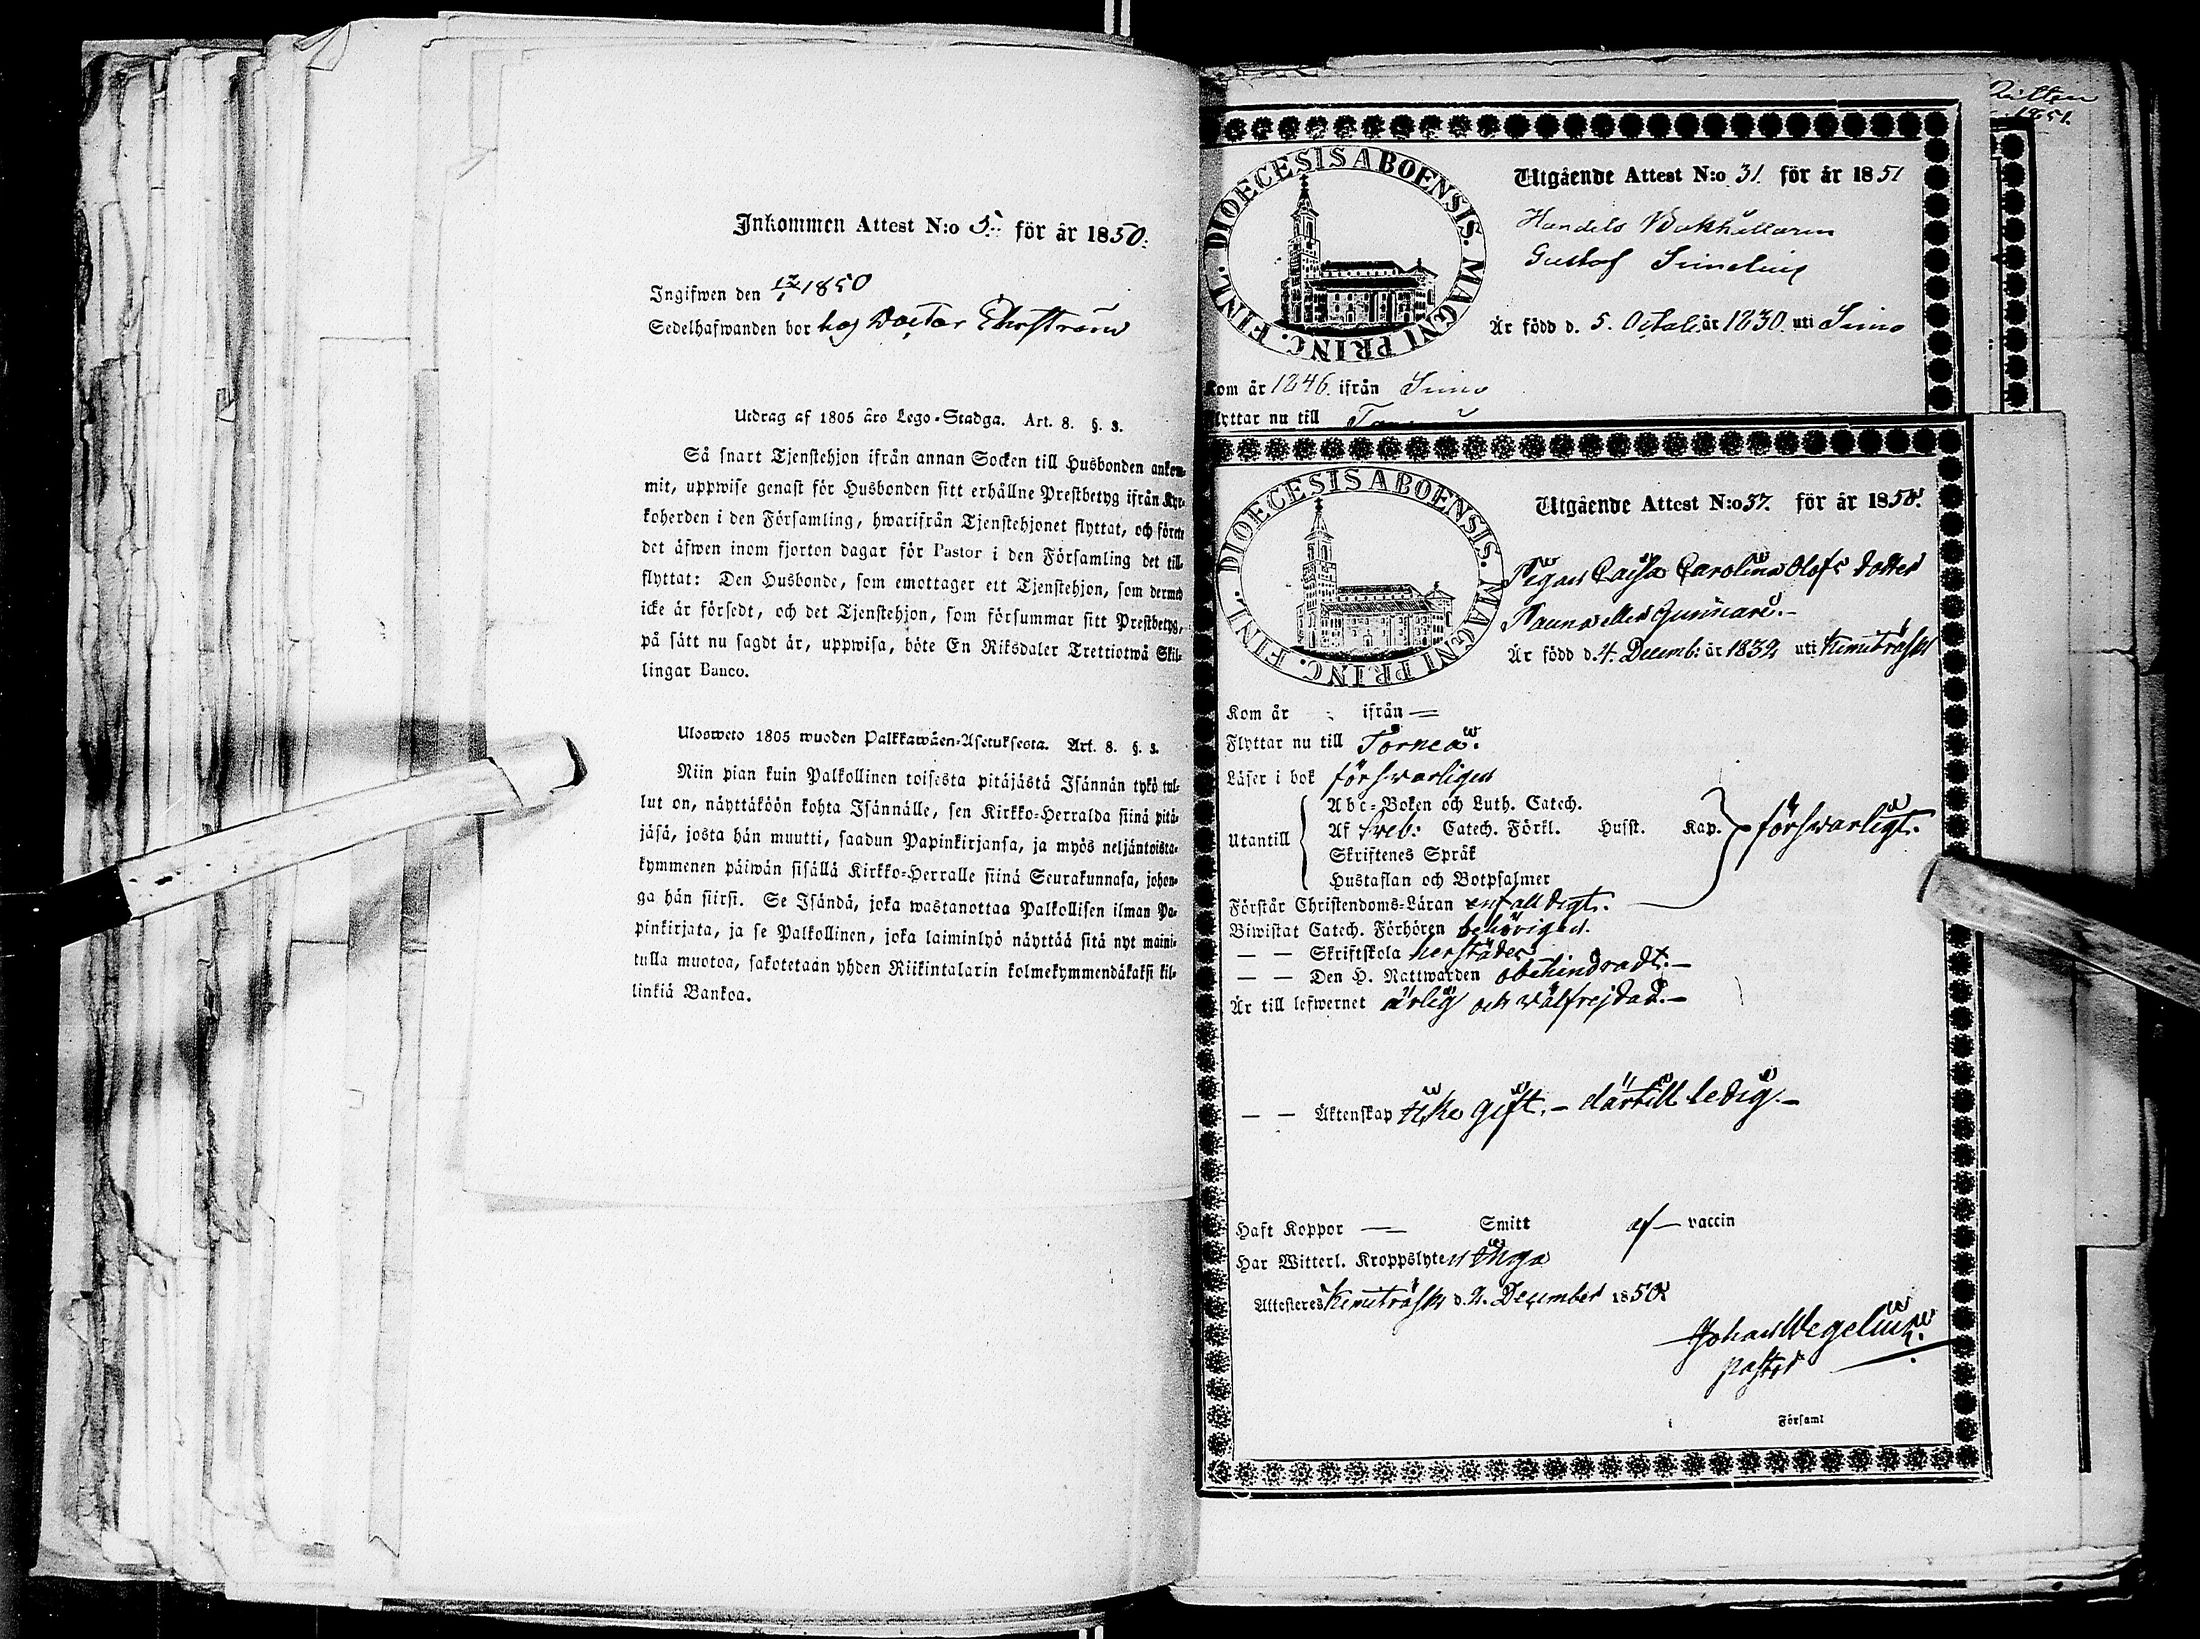 Inkommen Attest N:o 5. för år 1850.
Ingifwen den 12/1 1850
Sedelhafwanden bor hos Doctor Ehrström
Utdrag af 1805 års Lego-Stadga. Art. 8. §. 3.
Så snart Tjenstehjon ifrån annan Socken till Husbonden ankom-
mit, uppwise genast för Husbonden sitt erhållne Prestbetyg ifrån Kyr-
koherden i den Församling, hwarifrån Tjenstehjonet flyttat, och förete
det äfwen inom fjorton dagar för Pastor i den Församling det till-
flyttat: Den Husbonde, som emottager ett Tjenstehjon, som dermed
icke är försedt, och det Tjenstehjon, som försummar sitt Prestbetyg,
på sätt nu sagdt är, uppwisa, böte En Riksdaler Trettiotwå Skil-
lingar Banco.
Ulosweto 1805 wuoden Palkkawäen-Asetuksesta. Art. 8. §. 3.
Niin pian kuin Palkollinen toisesta pitäjästä Isännän tykö tul-
lut on, näyttäköön kohta Isännälle, sen Kirkko-Herralda siinä pitä-
jäsä, josta hän muutti, saadun Papinkirjansa, ja myös neljäntoista-
kymmenen päiwän sisällä Kirkko-Herralle siinä Seurakunnasa, johon-
ga hän siirsi. Se Isändä, joka wastanottaa Palkollisen ilman Pa-
pinkirjata, ja se Palkollinen, joka laiminlyö näyttää sitä nyt maini-
tulla muotoa, sakotetaan yhden Riikintalarin kolmekymmendäkaksi kil-
linkiä Bankoa.
1851.
DIOECESIS ABOENSIS. MAGNI PRINC. FINL.
Utgående Attest N:o 31. för år 1851
Handels Bokhållaren
Gustof Simelius
Är född d. 5. Octob. år 1830. uti Simo
Kom år 1846. ifrån Simo
Flyttar nu till
DIOECESIS ABOENSIS. MAGNI PRINC. FINL.
Utgående Attest N:o 37. för år 1850.
Pigan Caisa Carolina Olofs dotter
Är född d. 4. Decemb: år 1832 uti Kemiträsk
Kom år ifrån —
Flyttar nu till Torneå.
Läser i bok förswarligen
Utantill
Abc-Boken och Luth. Catech.
Af Sveb: Catech. Förkl. Husst. Kap. förswarligt.
Skriftenes Språk
Hustaflan och Botpsalmer
Förstår Christendoms-Läran enfalldigt.
Biwistat Catech. Förhören behörigen.
— — Skriftskola herstädes
— — Den H. Nattwarden obehindradt. —
Är till lefwernet ärlig och wälfrejdad. —
— — Äktenskap icke gift. — därtill ledig. —
Haft Koppor — Smitt af — vaccin
Har Witterl. Kroppslyten inga
Attesteres Kemiträsk d. 2. December 1850.
Johan Wegelius.
pastor
Församl